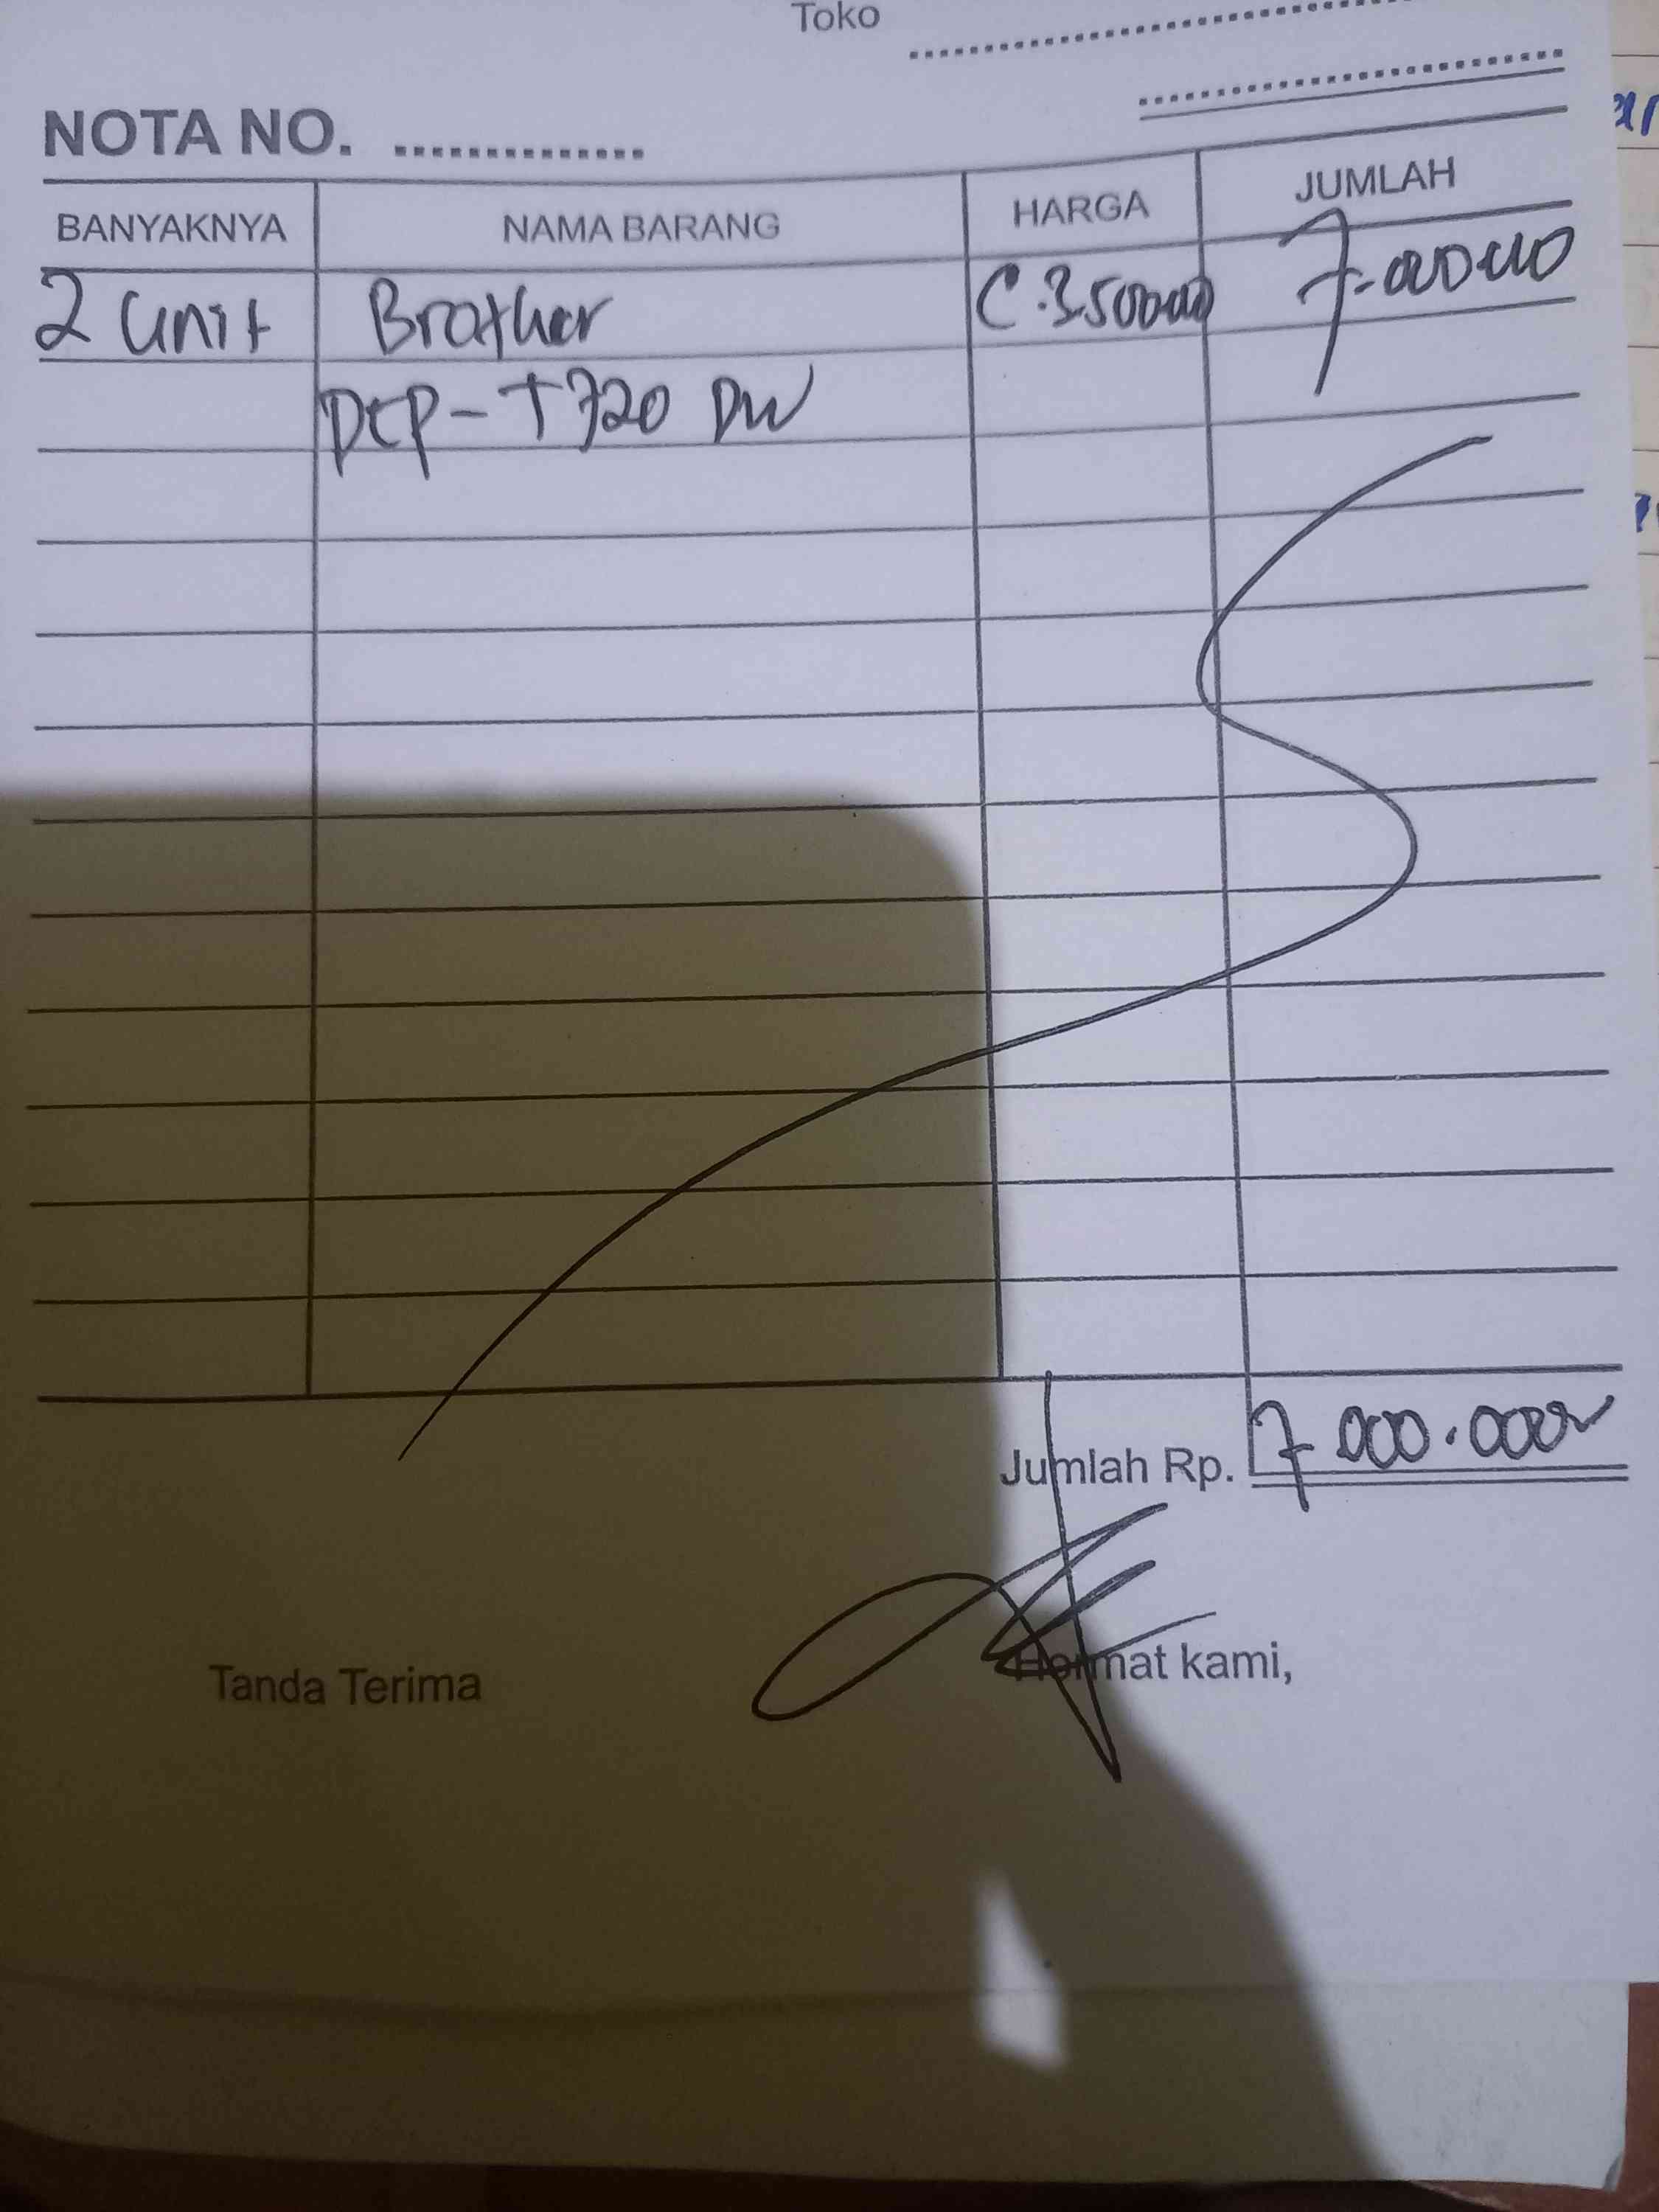 Toko
NOTA NO.
BANYAKNYA NAMA BARANG HARGA JUMLAH
2 unit Brother C.3.500000 7.000000
DCP-T720 DW
Jumlah Rp. 7.000.000
Tanda Terima Hormat kami,